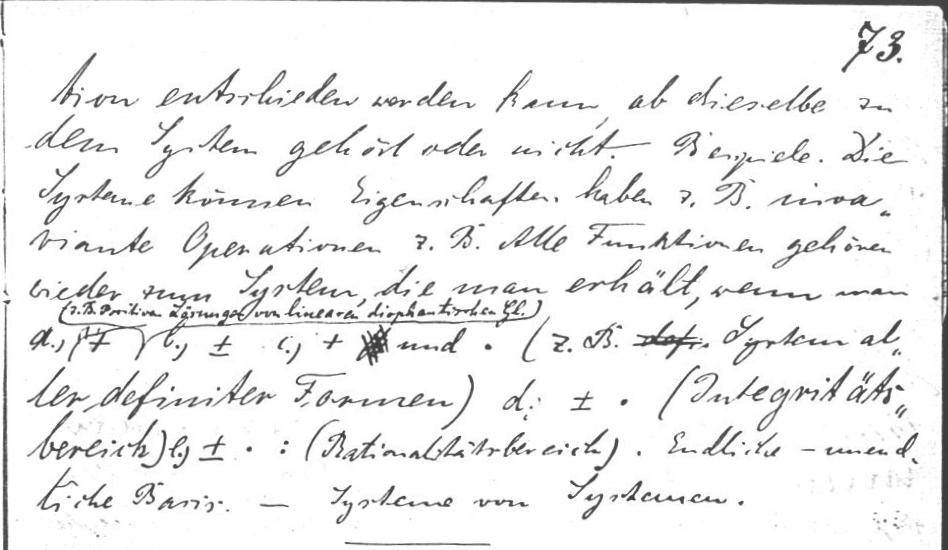 73.
tion entschieden werden kann, ob dieselbe zu
dem System gehört oder nicht. Beispiele. Die
Systeme können Eigenschaften haben z. B. inva„
riante Operationen z. B. Alle Funktionen gehören
wieder zum System, die man erhält, wenn man
(z. B. Positiven Lösungen von linearen diophantischen Gl.)
a., + b., ± c., + und · (z. B. System al„
ler definiter Formen) d., ± · (Integritäts„
bereich) e., ± · : (Rationalitätsbereich). Endliche – unend„
liche Basis. — Systeme von Systemen.